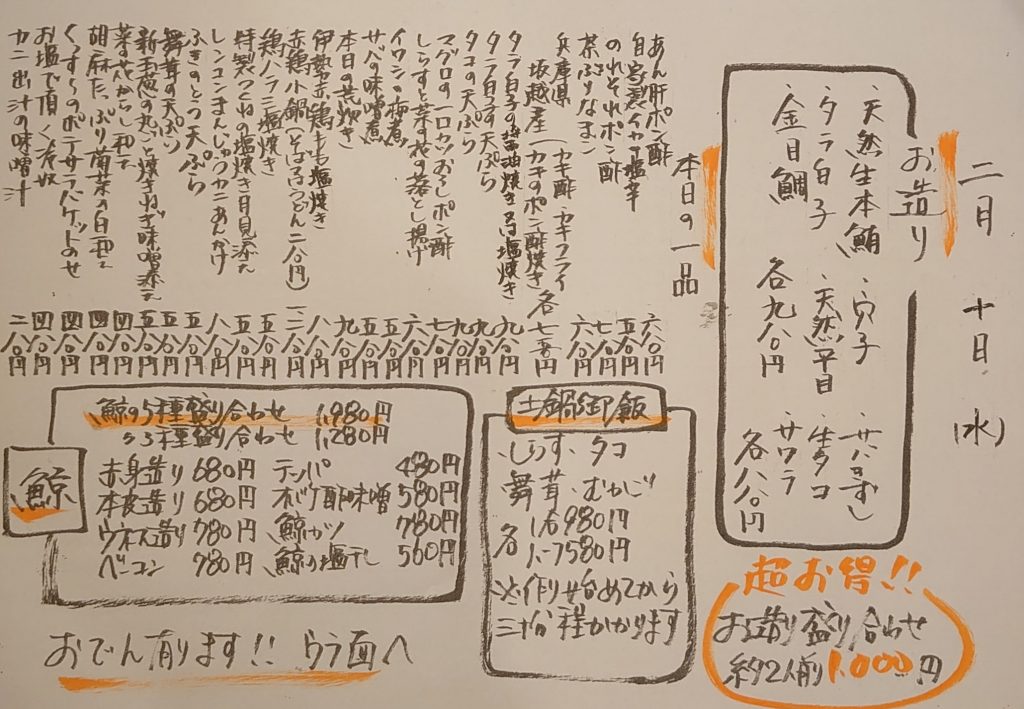 二月 十日 (水)
お造り
・天然生本鮪 ・穴子 ・サバきずし
・タラ白子 ・天然平目 ・生タコ
・金目鯛 各九八〇円 ・サワラ 各八八〇円
本日の一品
あん肝ポン酢 六八〇円
自家製イカの塩辛 五八〇円
のれそれポン酢 七八〇円
茶ぶりなまこ 六八〇円
兵庫県 坂越産(カキ酢 カキフライ カキのポン酢焼き 各七八〇円
タラ白子の醤油焼き 又は塩焼き 九八〇円
タラ白子の天ぷら 九八〇円
タコの天ぷら 九八〇円
マグロの一口カツおろしポン酢 七八〇円
しらすと菜の花の落とし揚げ 六八〇円
イワシの梅煮 五八〇円
サバの味噌煮 五八〇円
本日の荒炊き 九八〇円
伊勢赤鶏もも塩焼き 八八〇円
赤鶏小鍋(そば又はうどん二八〇円)
鶏ハラミ塩焼き 五八〇円
特製つくねの塩焼き月見添え 五八〇円
レンコンまんじゅうカニあんかけ 八八〇円
ふきのとう天ぷら 五八〇円
舞茸の天ぷら 五八〇円
新玉葱の丸ごと焼きねぎ味噌添え 五八〇円
菜の花からし和え 四八〇円
胡麻たっぷり菊菜の白和え 四八〇円
くんすーのポテサラバケットのせ 四八〇円
お塩で頂く冷奴 四八〇円
カニ出汁の味噌汁 二八〇円
鯨
鯨の5種盛り合わせ 1,980円
〃3種盛り合わせ 1,280円
赤身造り 680円 テッパ 480円
本皮造り 680円 オバケ酢味噌 580円
ウネス造り 780円 鯨カツ 780円
ベーコン 780円 鯨の塩干し 560円
土鍋御飯
しらす、タコ
舞茸、むかご
各 1合 980円
1.5合 1580円
※作り始めてから
三十分程かかります
超お得!!
お造り盛り合わせ
約2人前 1,000円
おでん有ります!! ウラ面へ